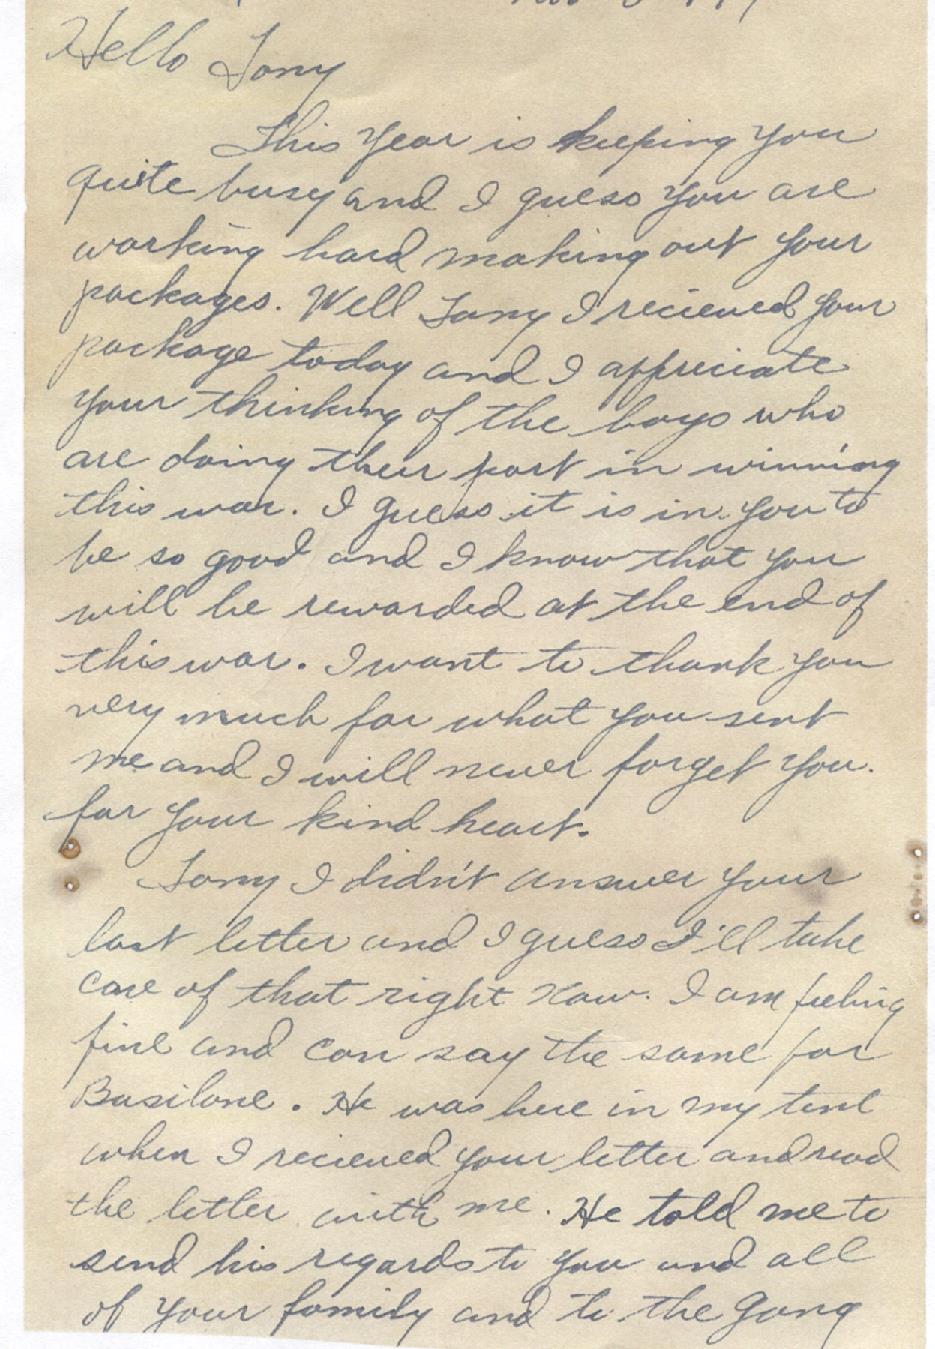 Hello Tony
This Year is keeping you
quite busy and I guess you are
working hard making out your
packages. Well Tony I recieved your
package today and I appriciate
your thinking of the boys who
are doing their part in winning
this war. I guess it is in you to
be so good and I know that you
will be rewarded at the end of
this war. I want to thank you
very much for what you sent
me and I will never forget you.
for your kind heart.
Tony I didn't answer your
last letter and I guess I'll take
care of that right now. I am feeling
fine and can say the same for
Basilone. He was here in my tent
when I recieved your letter and read
the letter with me. He told me to
send his regards to you and all
of your family and to the gang